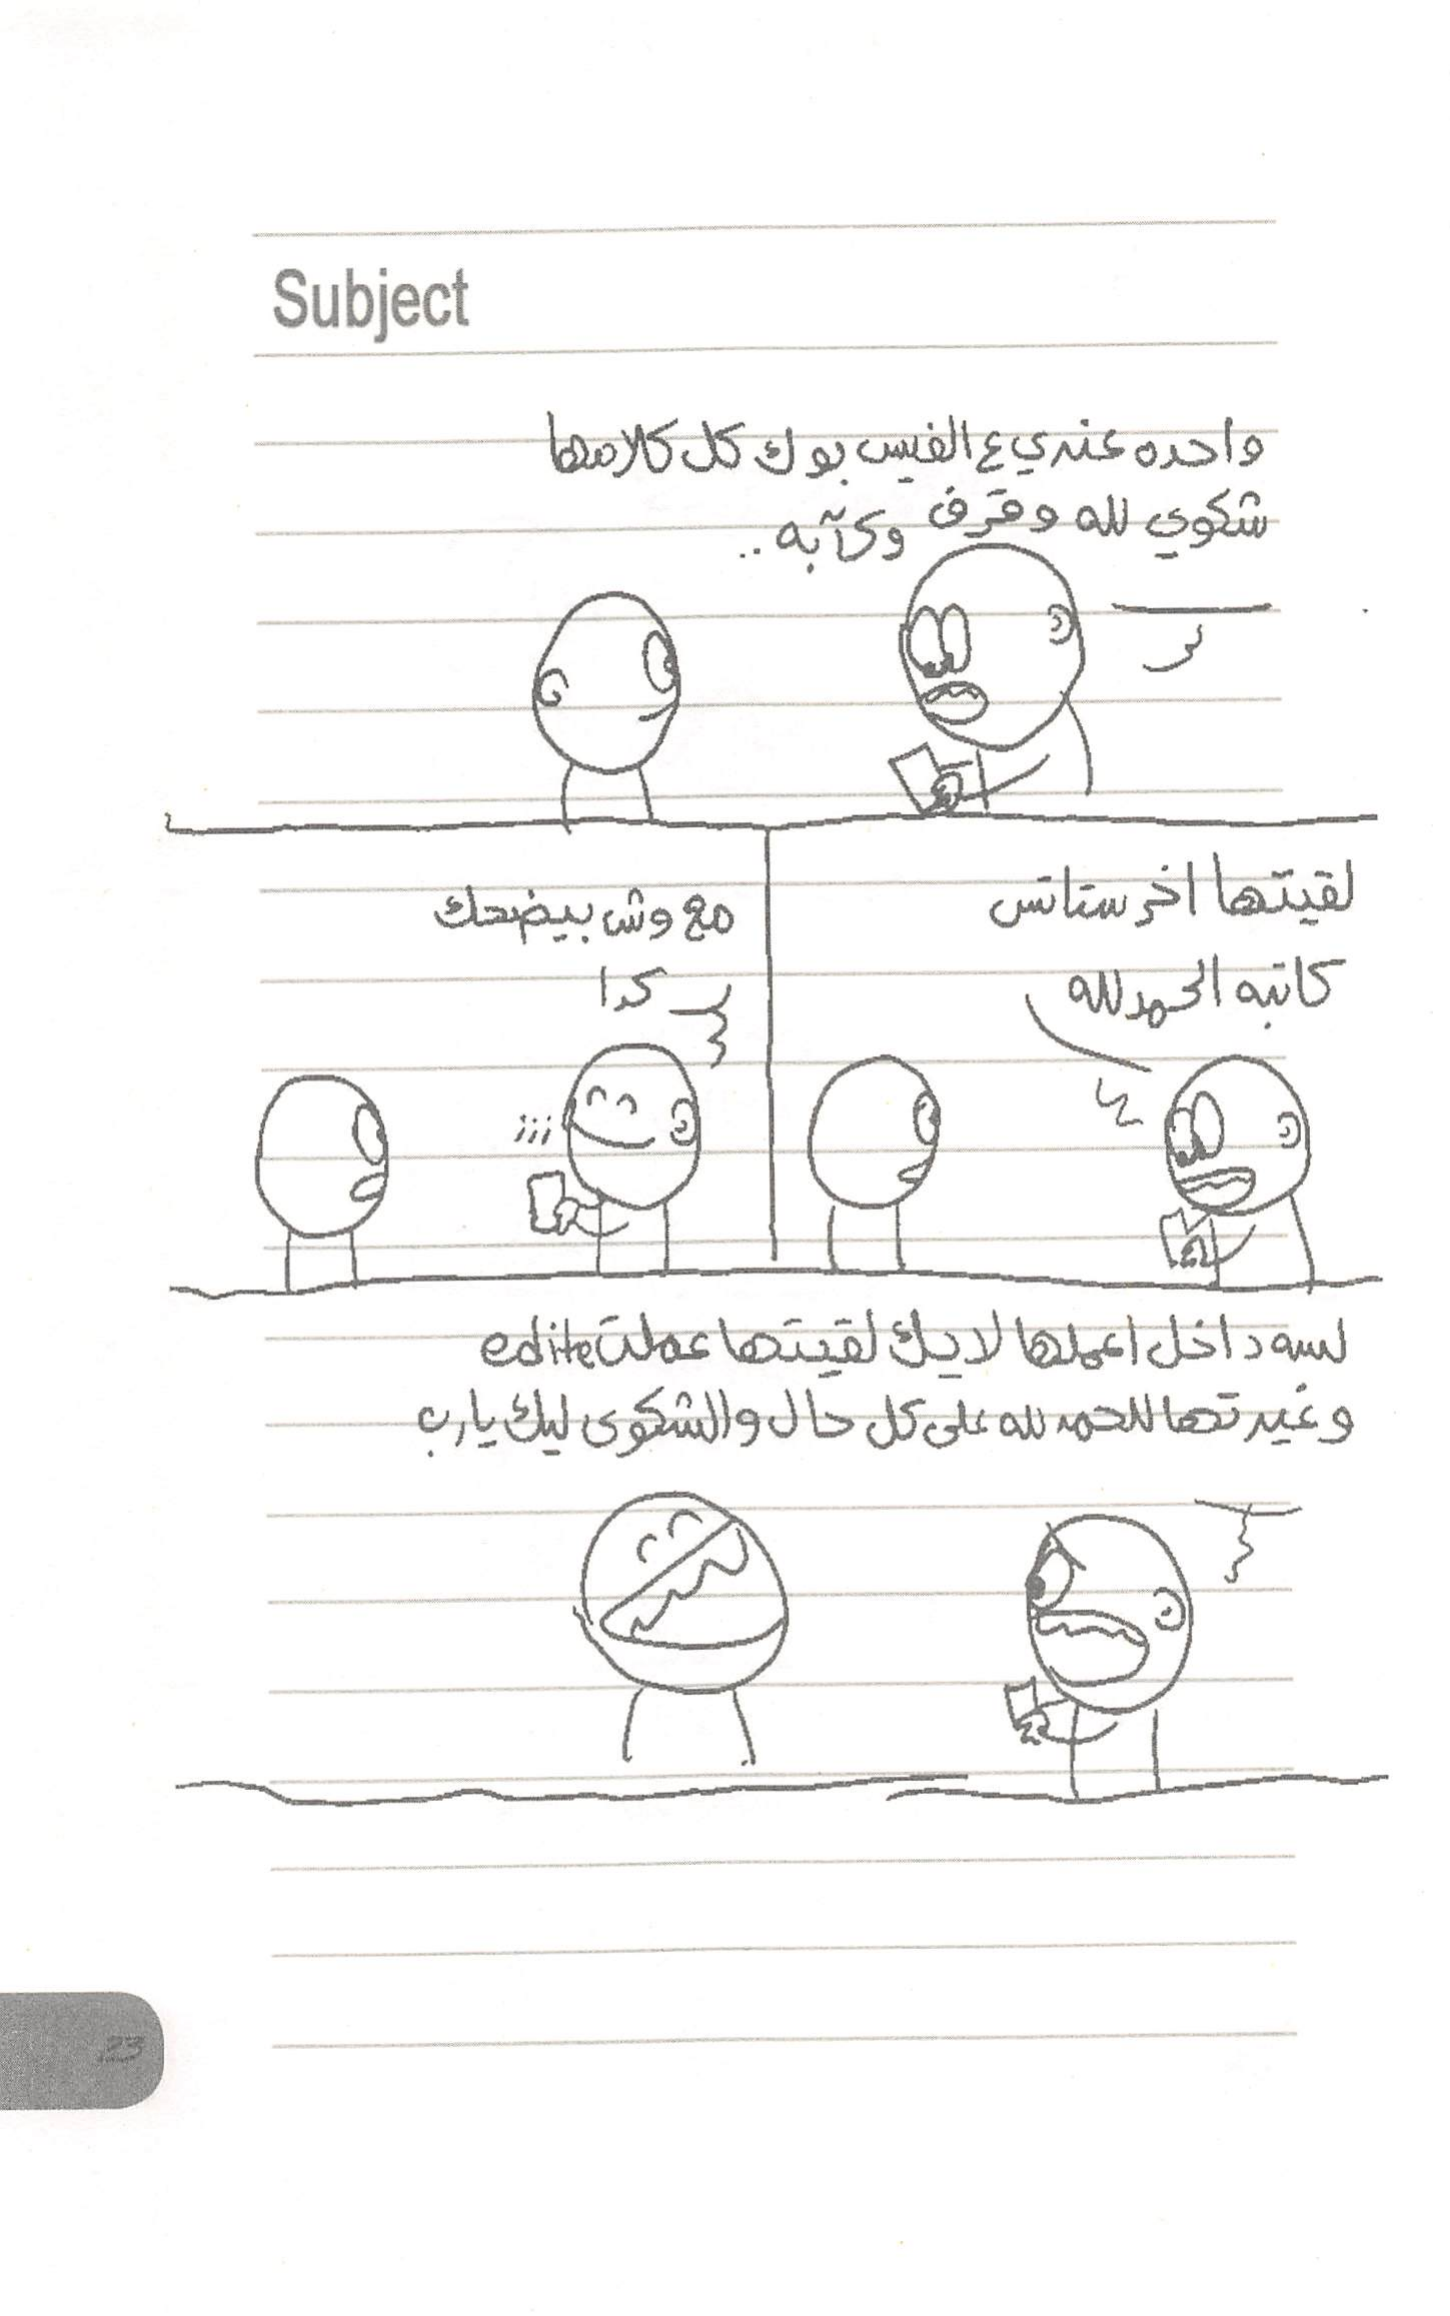 Subject
واحده عندي ع الفيس بوك كل كلامها
شكوي لله وقرف وكآبه..
لقيتها اخر ستاتس
كاتبه الحمد لله
مع وش بيضحك
كدا
لسه داخل اعملها لايك لقيتها عملت edite
وغيرتها للحمد لله على كل حال والشكوى ليك يارب
23